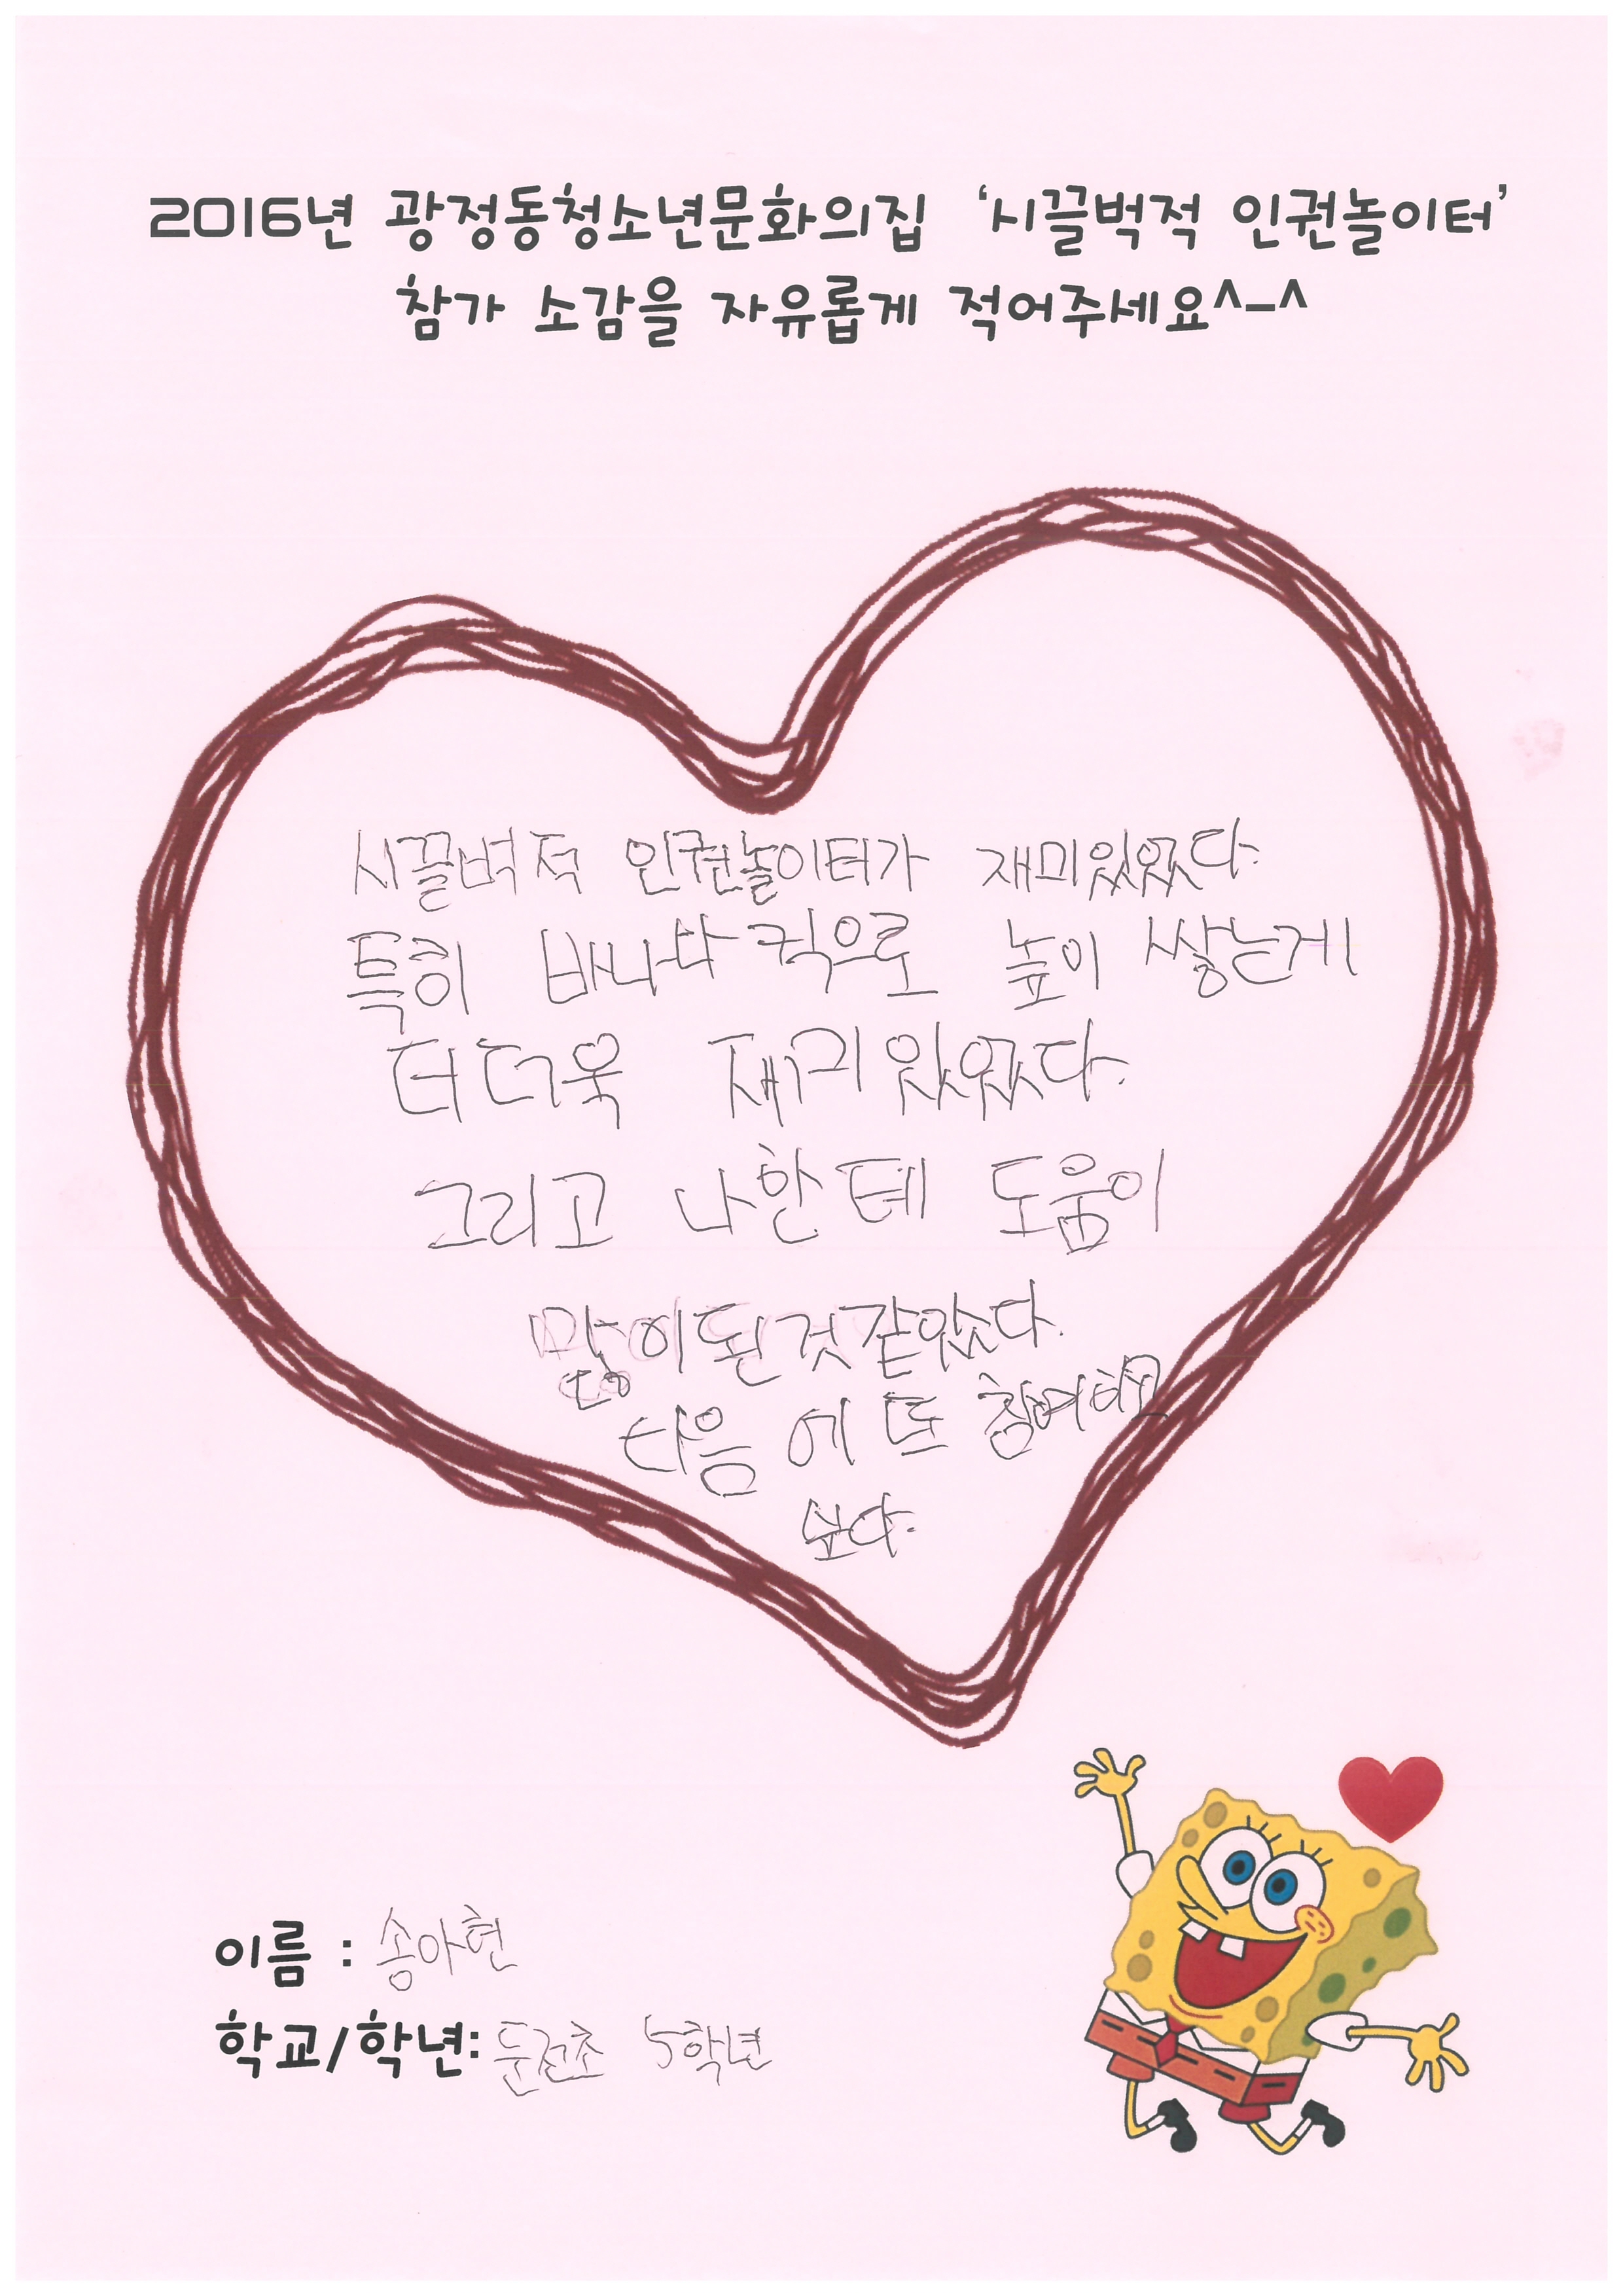 2016년 광정동청소년문화의집 ‘시끌벅적 인권놀이터’
참가 소감을 자유롭게 적어주세요^-^
시끌벅적 인권놀이터가 재미있었다.
특히 바나나 킥으로 높이 쌓는게
더더욱 재미있었다.
그리고 나한테 도움이
많이 된것 같았다.
다음에 또 참여하고
싶다.
이름 : 송아현
학교/학년: 둔전초 5학년